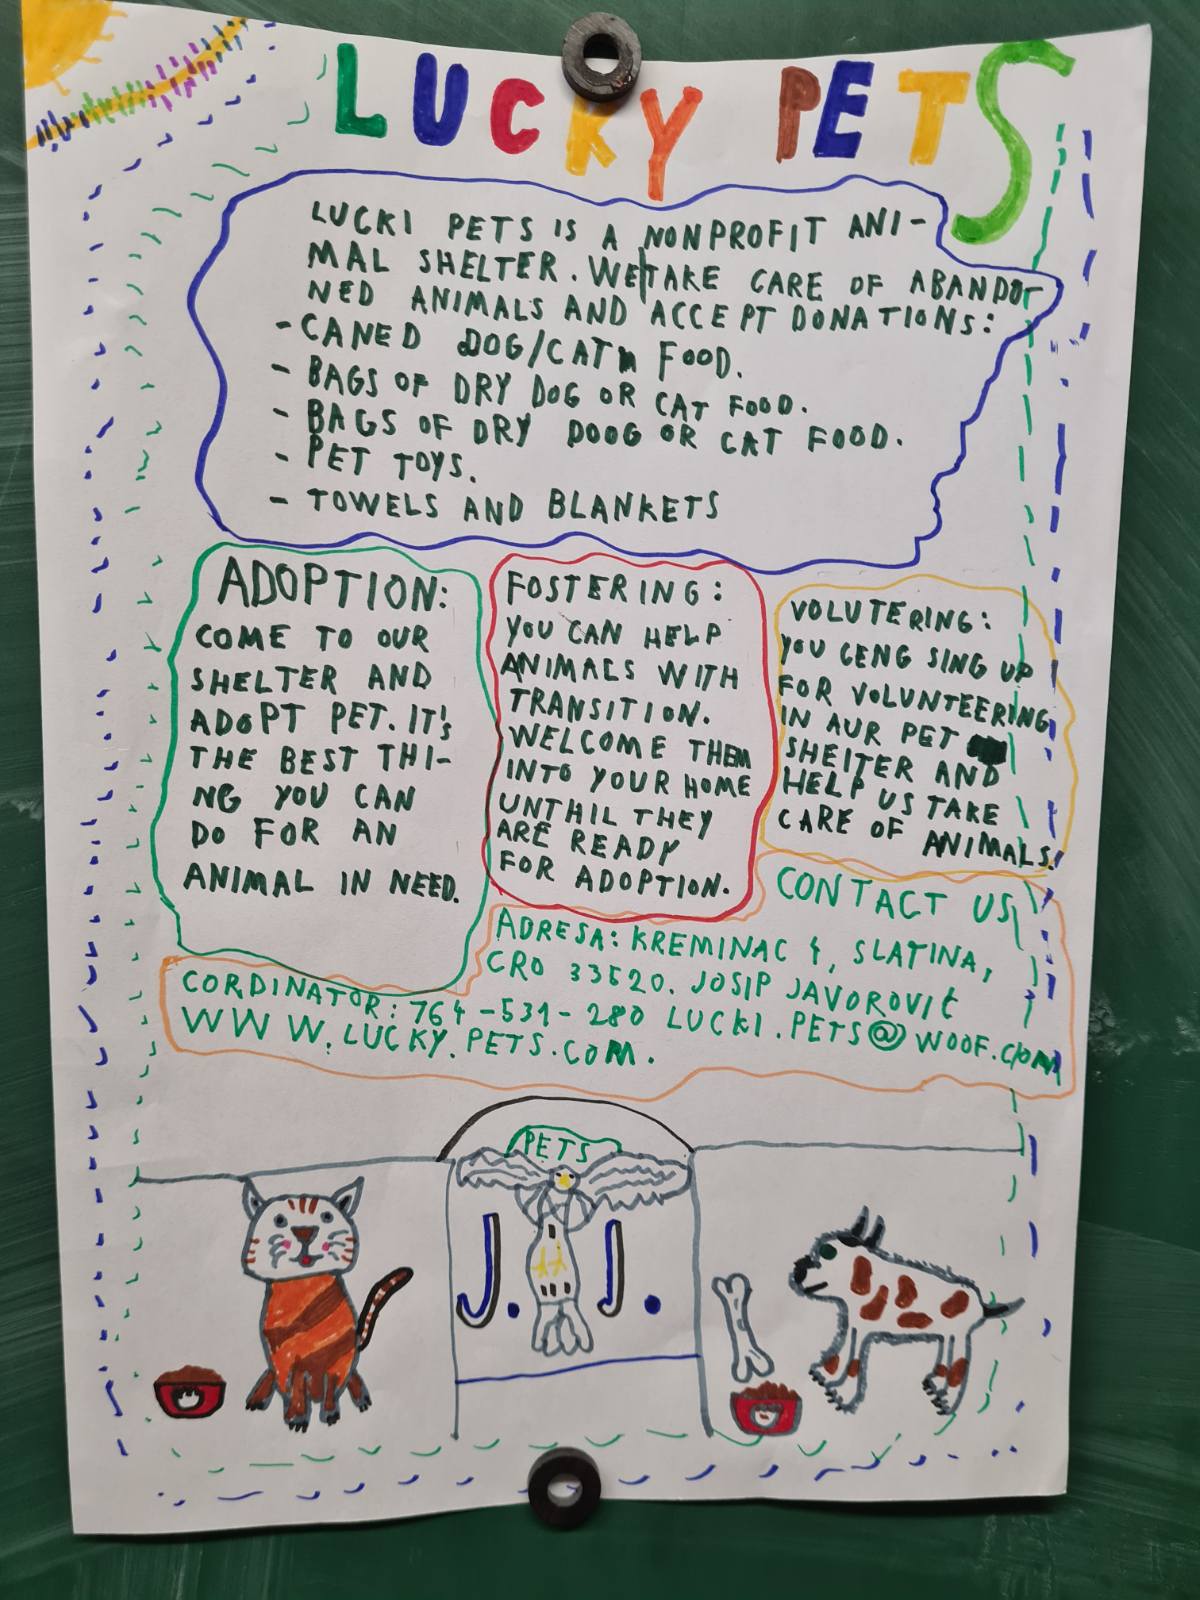 LUCKY PETS
LUCKI PETS IS A NONPROFIT ANI-
MAL SHELTER. WE TAKE CARE OF ABANDO-
NED ANIMALS AND ACCEPT DONATIONS:
- CANED DOG/CAT FOOD.
- BAGS OF DRY DOG OR CAT FOOD.
- BAGS OF DRY DOOG OR CAT FOOD.
- PET TOYS.
- TOWELS AND BLANKETS
ADOPTION:
COME TO OUR
SHELTER AND
ADOPT PET. IT'S
THE BEST THI-
NG YOU CAN
DO FOR AN
ANIMAL IN NEED.
FOSTERING:
YOU CAN HELP
ANIMALS WITH
TRANSITION.
WELCOME THEM
INTO YOUR HOME
UNTHIL THEY
ARE READY
FOR ADOPTION.
VOLUTERING:
YOU CENG SING UP
FOR VOLUNTEERING
IN AUR PET
SHEITER AND
HELP US TAKE
CARE OF ANIMALS!
CONTACT US
ADRESA: KREMINAC 4, SLATINA,
CRO 33520. JOSIP JAVOROVIĆ
CORDINATOR: 764-531-280 LUCKI.PETS@WOOF.COM
WWW.LUCKY.PETS.COM.
PETS
J. J.